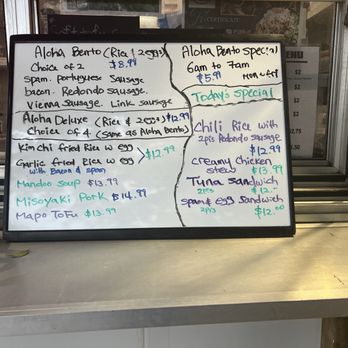 Aloha Bento (Rice / 2 eggs)
Choice of 2 $8.99
Spam. Portuguese Sausage
bacon. Redondo Sausage.
Vienna Sausage. Link Sausage
Aloha Deluxe (Rice & 2 eggs) $12.99
Choice of 4 (same as Aloha Bento)
Kim chi fried Rice w egg
Garlic fried Rice w egg $12.99
with Bacon & Spam
Mandoo Soup $13.99
Misoyaki Pork $14.99
Mapo Tofu $13.99
Aloha Bento Special
6am to 7am
$5.99 Mon ~ Fri
Today's Special
Chili Rice with
2pcs Redondo Sausage
$12.99
Creamy chicken
Stew $13.99
Tuna Sandwich
2pcs $12.-
Spam & egg Sandwich
2pcs $12.00
MENU